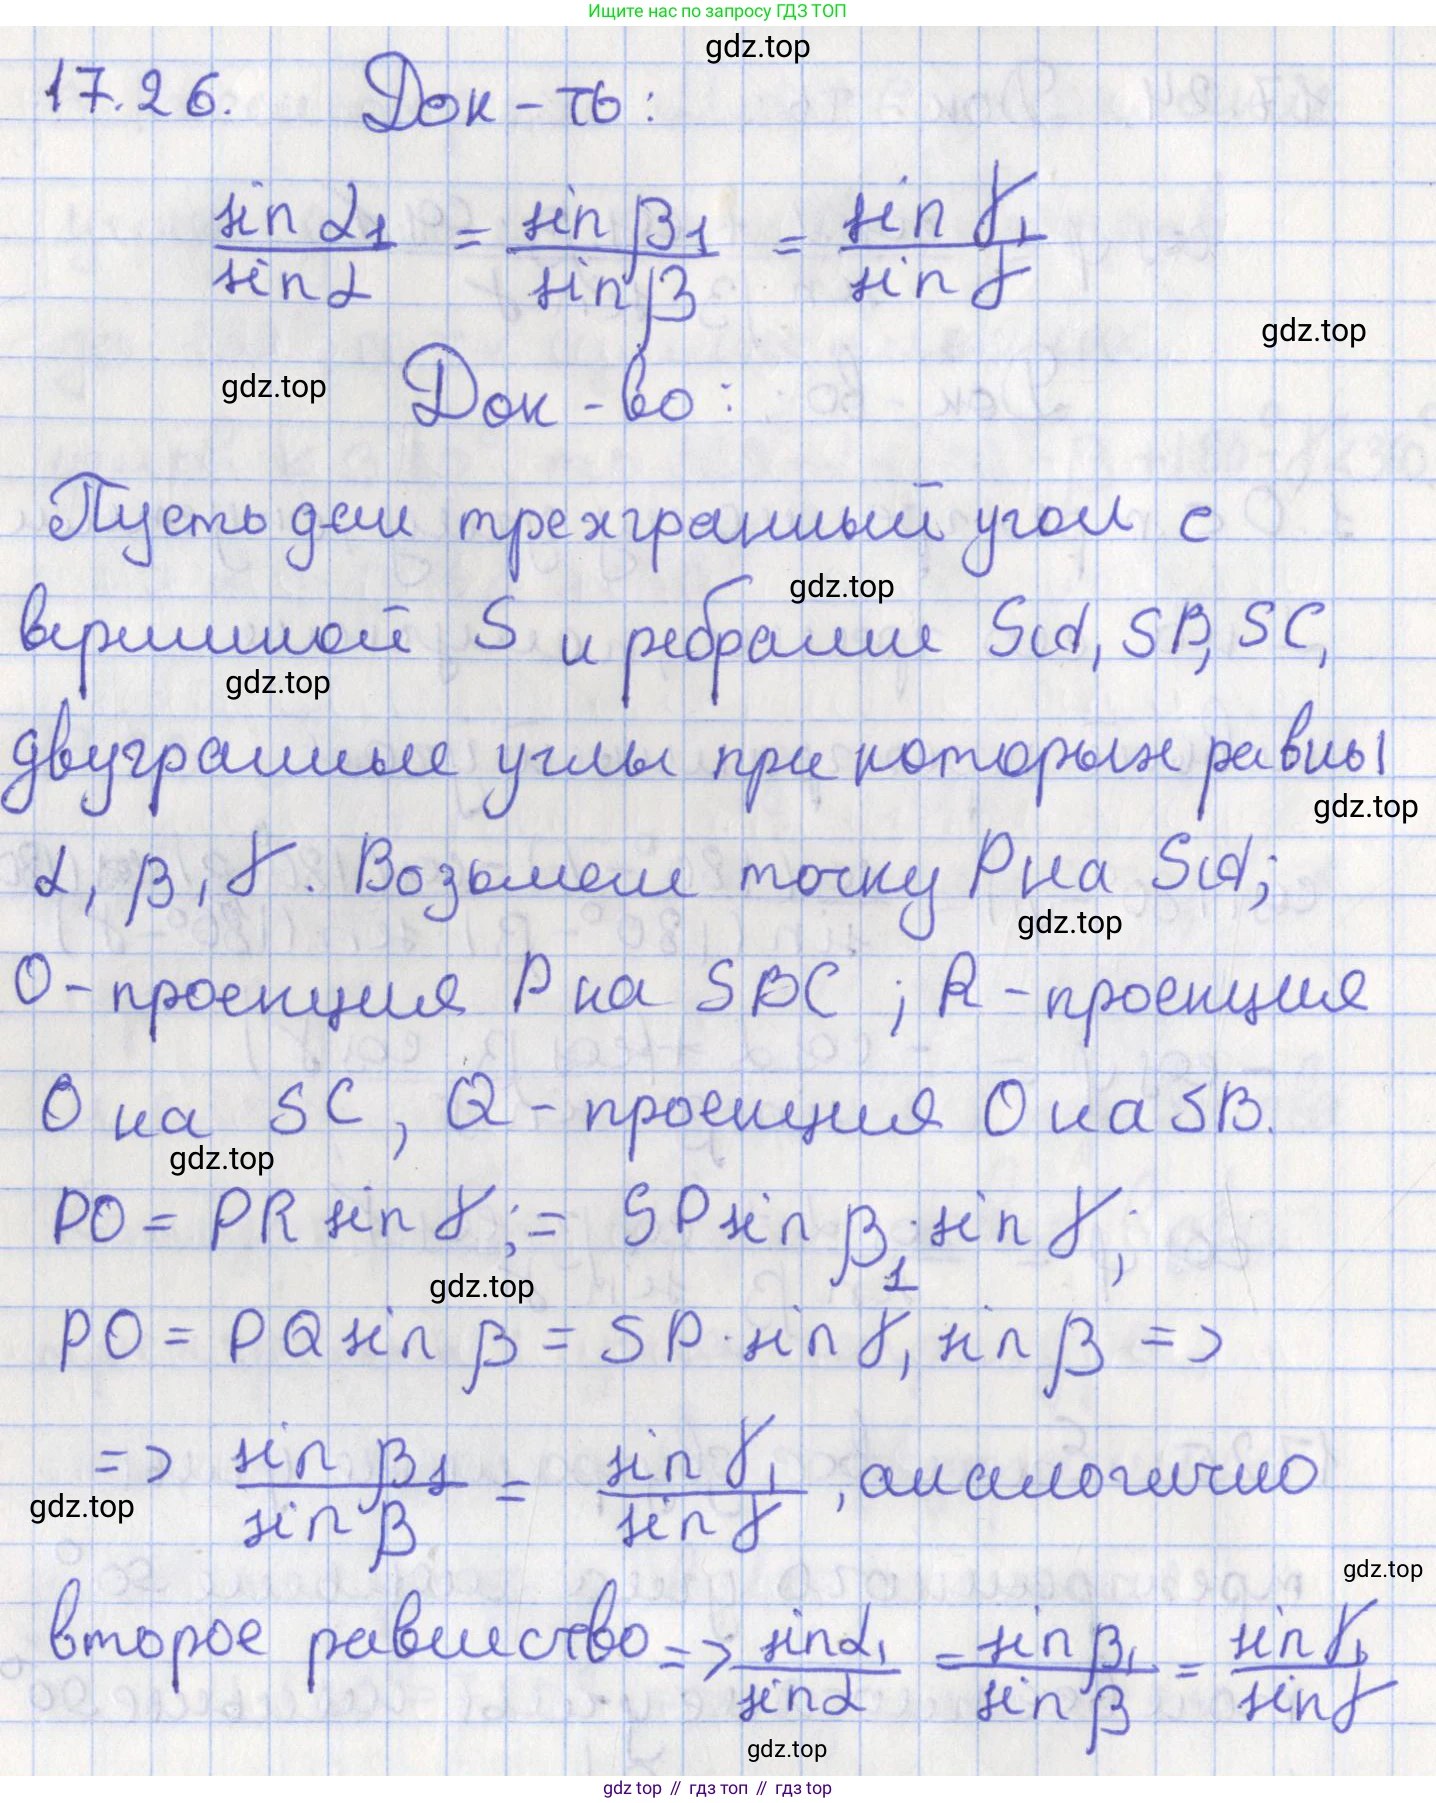 Ищите нас по запросу ГДЗ ТОП
gdz.top
17.26. Док-ть:
sin α₁ / sin α = sin β₁ / sin β = sin γ₁ / sin γ
gdz.top
gdz.top
Док-во:
Пусть дан трехгранный угол с
gdz.top
вершиной S и ребрами SA, SB, SC,
gdz.top
двугранные углы при которых равны
gdz.top
α, β, γ. Возьмем точку P на SA;
gdz.top
O - проекция P на SBC; R - проекция
O на SC, Q - проекция O на SB.
gdz.top
PO = PR sin γ; = SP sin β₁ · sin γ;
gdz.top
PO = PQ sin β = SP · sin γ, sin β =>
=> sin β₁ / sin β = sin γ₁ / sin γ, аналогично
gdz.top
gdz.top
второе равенство => sin α₁ / sin α = sin β₁ / sin β = sin γ₁ / sin γ
gdz.top
gdz top // гдз топ // gdz.top